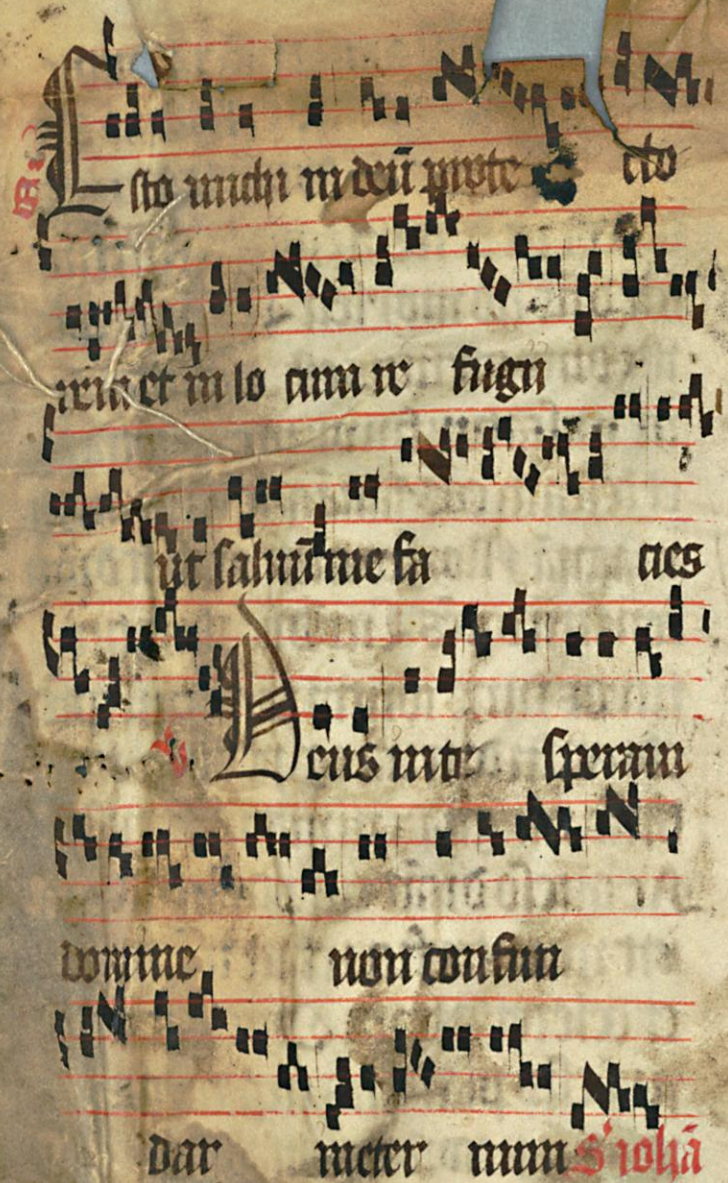 Esto michi in deū prote cto
rem et in lo cum re fugii
ut saluū me fa cies
Deus in te speraui
domine non confun
dar in eter num S' iohā